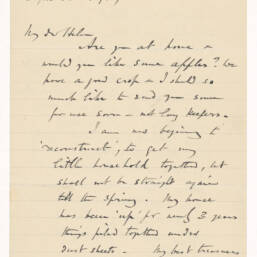 My dear Helen
Are you at home &
would you like some apples? We
have a good crop & I should so
much like to send you some
for use soon - not long keepers.
I am now beginning to
'reconstruct', to get my
little household together, but
shall not be straight again
till the Spring. My house
has been 'up' for nearly 3 years
things piled together under
dust sheets. My best treasures